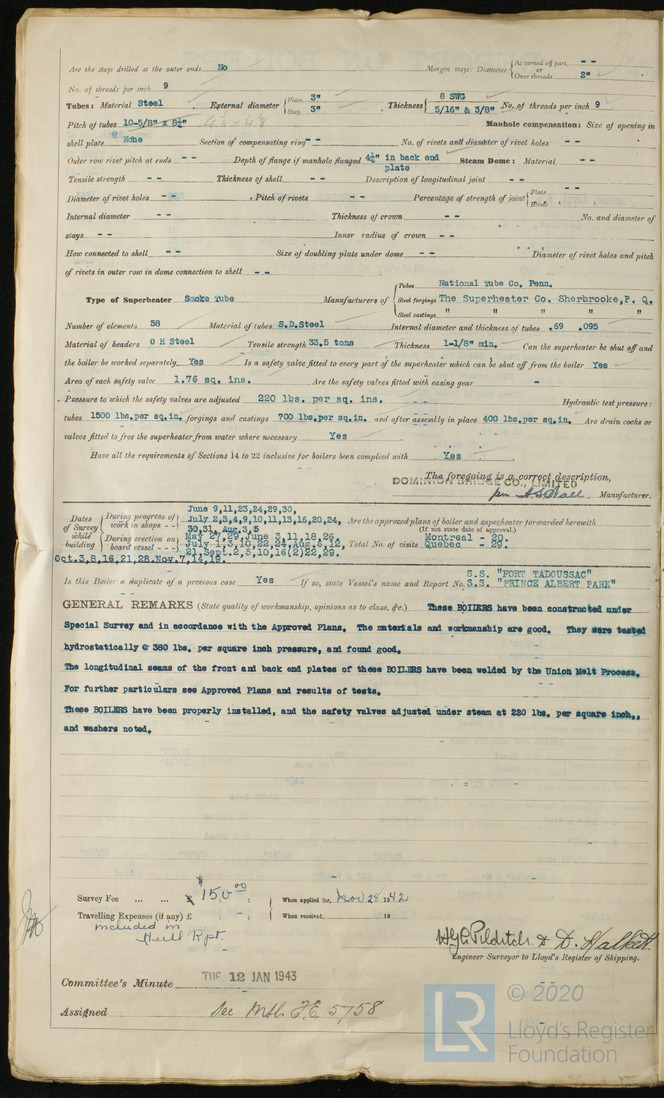 Are the stays drilled at the outer ends No Margin stays: Diameter { At turned off part, - - or Over threads 2"
No. of threads per inch 9
Tubes: Material Steel External diameter { Plain 3" Stay 3" Thickness { 8 SWG 5/16" & 3/8" No. of threads per inch 9
Pitch of tubes 10-5/8" x 8½" Manhole compensation: Size of opening in
shell plate None Section of compensating ring - - No. of rivets and diameter of rivet holes - -
Outer row rivet pitch at ends - - Depth of flange if manhole flanged 4½" in back end plate Steam Dome: Material - -
Tensile strength - - Thickness of shell - - Description of longitudinal joint - -
Diameter of rivet holes - - Pitch of rivets - - Percentage of strength of joint { Plate - - Rivets
Internal diameter - - Thickness of crown - - No. and diameter of
stays - - Inner radius of crown - -
How connected to shell - - Size of doubling plate under dome - - Diameter of rivet holes and pitch
of rivets in outer row in dome connection to shell - -
Type of Superheater Smoke Tube Manufacturers of { Tubes National Tube Co. Penn.
Steel forgings The Superheater Co. Sherbrooke, P. Q.
Steel castings " " " " "
Number of elements 58 Material of tubes S.D.Steel Internal diameter and thickness of tubes .69 .095
Material of headers O H Steel Tensile strength 33.5 tons Thickness 1-1/8" min. Can the superheater be shut off and
the boiler be worked separately Yes Is a safety valve fitted to every part of the superheater which can be shut off from the boiler Yes
Area of each safety valve 1.76 sq. ins. Are the safety valves fitted with easing gear -
Pressure to which the safety valves are adjusted 220 lbs. per sq. ins. Hydraulic test pressure:
tubes 1500 lbs.per sq.in. forgings and castings 700 lbs.per sq.in. and after assembly in place 400 lbs.per sq.in. Are drain cocks or
valves fitted to free the superheater from water where necessary Yes
Have all the requirements of Sections 14 to 22 inclusive for boilers been complied with Yes
The foregoing is a correct description,
DOMINION BRIDGE CO., LIMITED
per Manufacturer.
Dates of Survey while building { During progress of work in shops - - June 9,11,23,24,29,30,
July 2,3,4,9,10,11,13,16,20,24,
30,31, Aug.3,5 Are the approved plans of boiler and superheater forwarded herewith
(If not state date of approval.)
During erection on board vessel - - - May 27,29, June 3,11,18,26, Montreal - 20.
July 1,3,10,22,24, Aug.6,12, Total No. of visits Quebec - 29.
21, Sept.2,5,10,16(2)22,29.
Oct.3,8,16,21,28.Nov.7,14,19.
Is this Boiler a duplicate of a previous case Yes If so, state Vessel's name and Report No. S.S. "FORT TADOUSSAC"
S.S. "PRINCE ALBERT PARK"
GENERAL REMARKS (State quality of workmanship, opinions as to class, &c.) These BOILERS have been constructed under
Special Survey and in accordance with the Approved Plans. The materials and workmanship are good. They were tested
hydrostatically @ 380 lbs. per square inch pressure, and found good.
The longitudinal seams of the front and back end plates of these BOILERS have been welded by the Union Melt Process.
For further particulars see Approved Plans and results of tests.
These BOILERS have been properly installed, and the safety valves adjusted under steam at 220 lbs. per square inch,,
and washers noted.
Survey Fee ... ... $150.00 When applied for, Nov 28 1942
Travelling Expenses (if any) £ : - : When received, 19
included in
Hull Rpt.
W.G. Pilditch & D. Halkett
Engineer Surveyor to Lloyd's Register of Shipping.
Committee's Minute TUE 12 JAN 1943
Assigned See Mtl. F.E 5758
LR © 2020
Lloyd's Register
Foundation